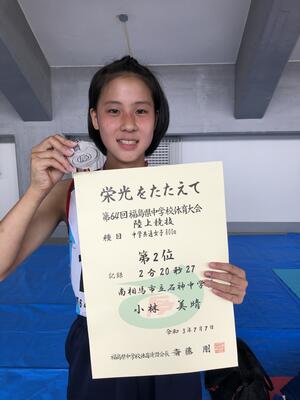 栄光をたたえて
第64回福島県中学校体育大会
陸上競技
種目 中学共通女子800m
第2位
記録 2分20秒27
南相馬市立石神中学
小林 美晴
令和3年7月7日
福島県中学校体育連盟会長 斎藤 剛